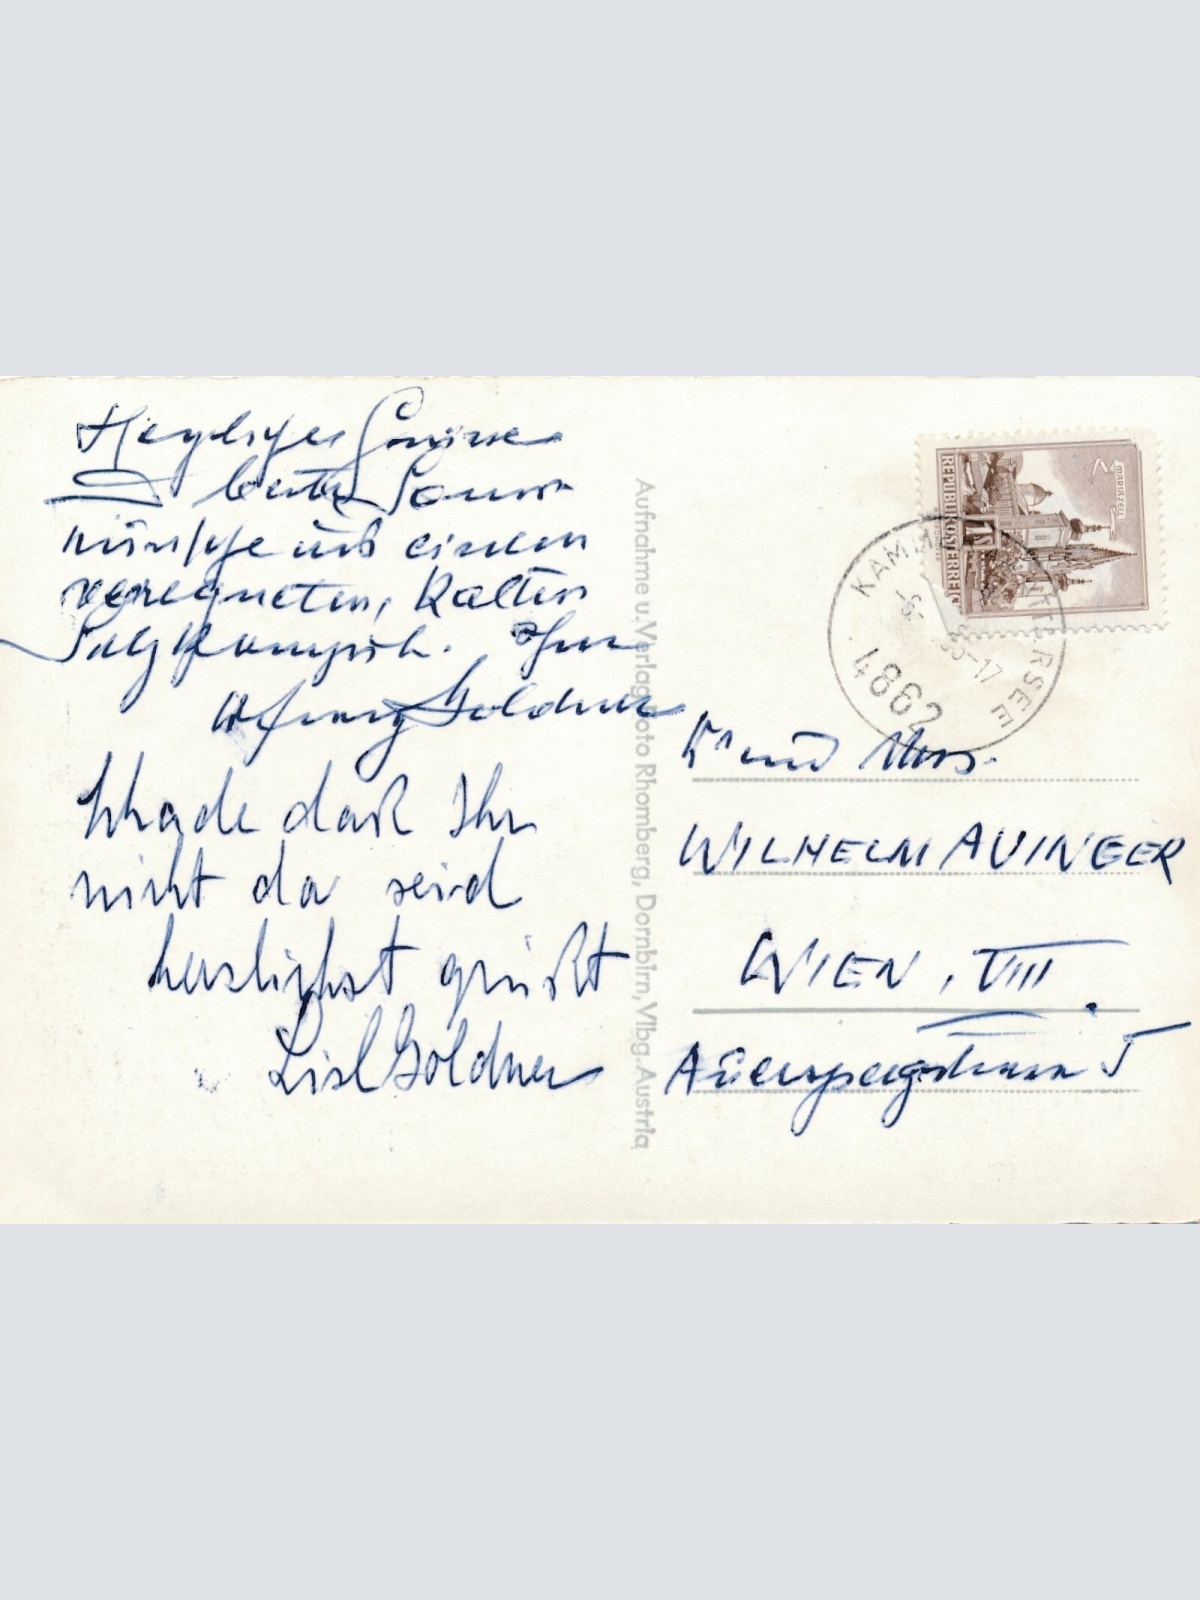 Herzliche Grüsse
u beste Sommer
wünsche aus einem
verregneten, kalten
Salzkammergut. Ihr
Goldner
Schade daß Ihr
nicht da seid
herzlichst grüßt
Lisl Goldner
Aufnahme u. Verlag Foto Rhomberg, Dornbirn, Vlbg. Austria
REPUBLIK ÖSTERREICH
MARIAZELL
1S
KAMM ATTERSEE
-17
4862
und Mrs.
WILHELM AUINGER
WIEN, VIII.
Auerspergstrasse 5